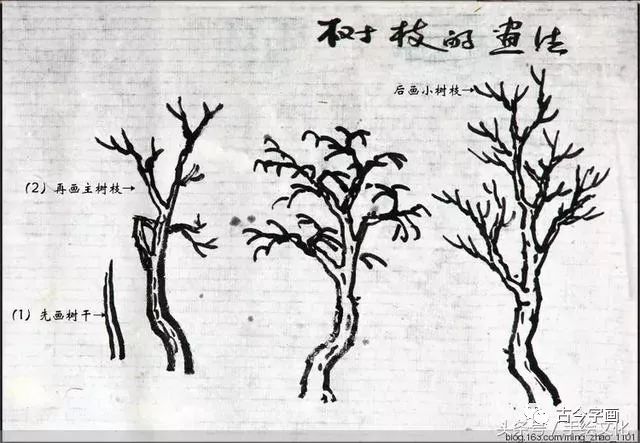 树枝的画法
后画小树枝→
(2) 再画主树枝→
(1) 先画树干→
古今字画
头条号/手绘文化
blog.163.com/ming_zhao_1101